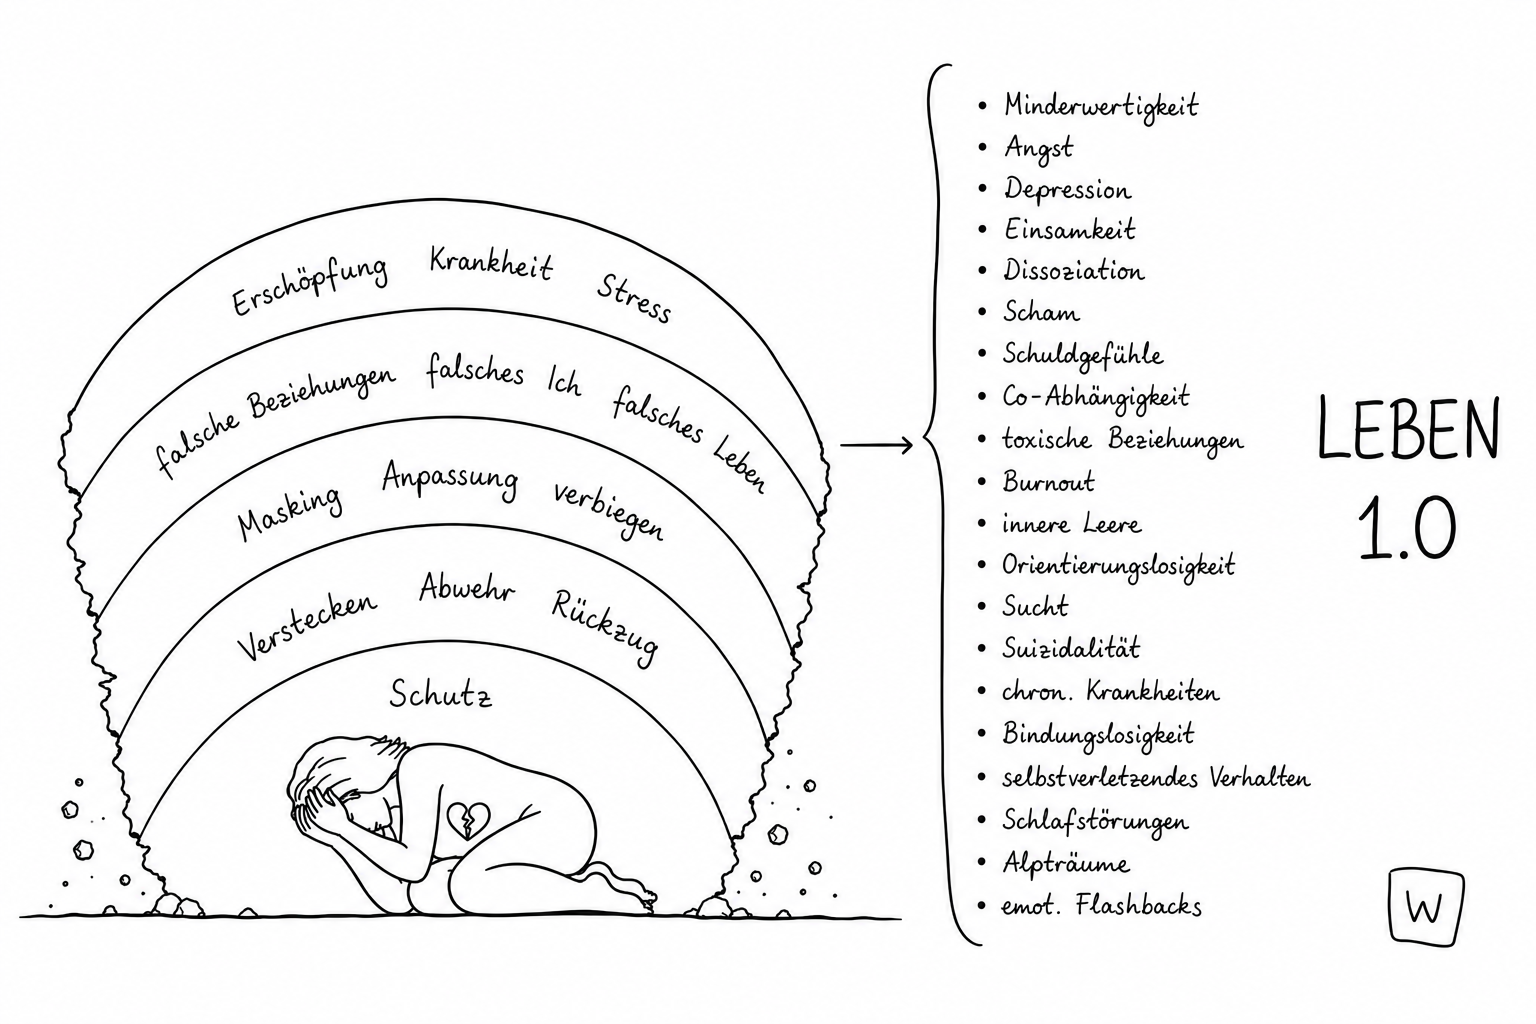 Erschöpfung Krankheit Stress
falsche Beziehungen falsches Ich falsches Leben
Masking Anpassung verbiegen
Verstecken Abwehr Rückzug
Schutz
• Minderwertigkeit
• Angst
• Depression
• Einsamkeit
• Dissoziation
• Scham
• Schuldgefühle
• Co-Abhängigkeit
• toxische Beziehungen
• Burnout
• innere Leere
• Orientierungslosigkeit
• Sucht
• Suizidalität
• chron. Krankheiten
• Bindungslosigkeit
• selbstverletzendes Verhalten
• Schlafstörungen
• Alpträume
• emot. Flashbacks
LEBEN
1.0
W